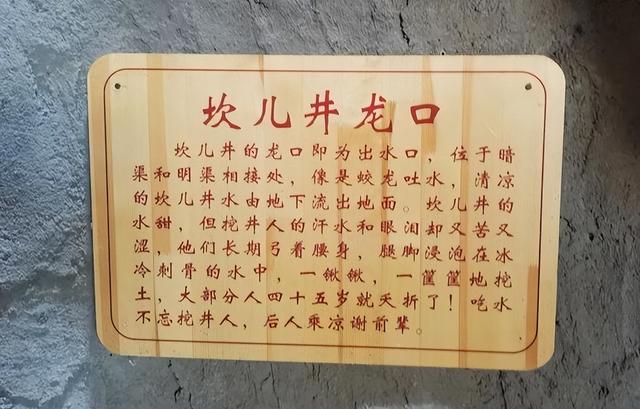 坎儿井龙口
坎儿井的龙口即为出水口，位于暗
渠和明渠相接处，像是蛟龙吐水，清凉
的坎儿井水由地下流出地面。坎儿井的
水甜，但挖井人的汗水和眼泪却又苦又
涩，他们长期弓着腰身，腿脚浸泡在冰
冷刺骨的水中，一锹锹，一筐筐地挖
土，大部分人四十五岁就夭折了！吃水
不忘挖井人，后人乘凉谢前辈。